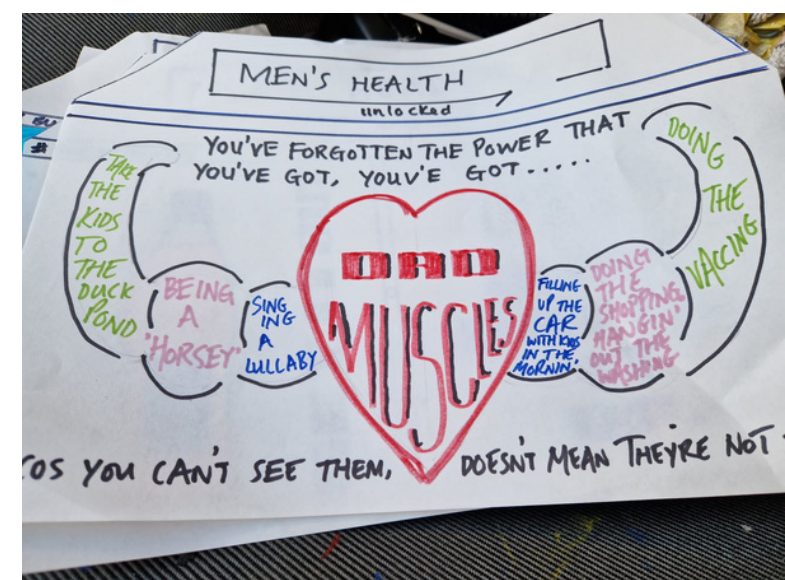 MEN'S HEALTH
unlocked
YOU'VE FORGOTTEN THE POWER THAT
YOU'VE GOT, YOUV'E GOT.....
TAKE
THE
KIDS
TO
THE
DUCK
POND
BEING
A
"HORSEY"
SING
ING
A
LULLABY
DAD
MUSCLES
FILLING
UP THE
CAR
WITH KIDS
IN THE
MORNIN'
DOING
THE
SHOPPING,
HANGIN'
OUT THE
WASHING
DOING
THE
VACCING
COS YOU CAN'T SEE THEM, DOESN'T MEAN THEY'RE NOT